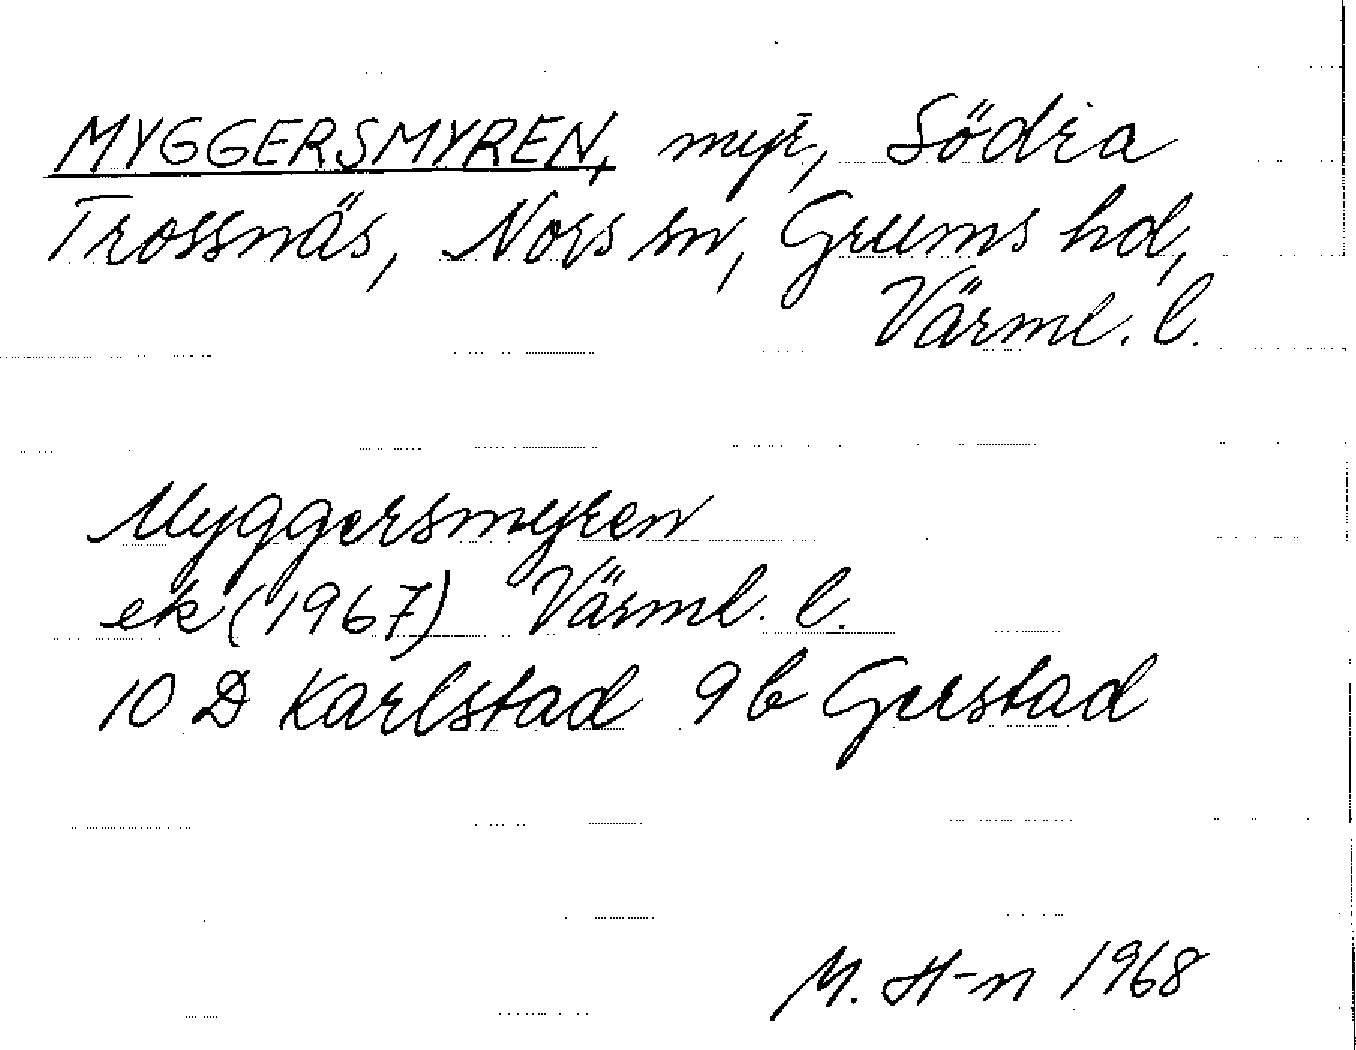 MYGGERSMYREN, myr, Södra
Trossnäs, Nors sn, Grums hd,
Värml. l.
Myggersmyren
ek (1967) Värml. l.
10 D Karlstad 9 b Gerstad
M. H-n 1968